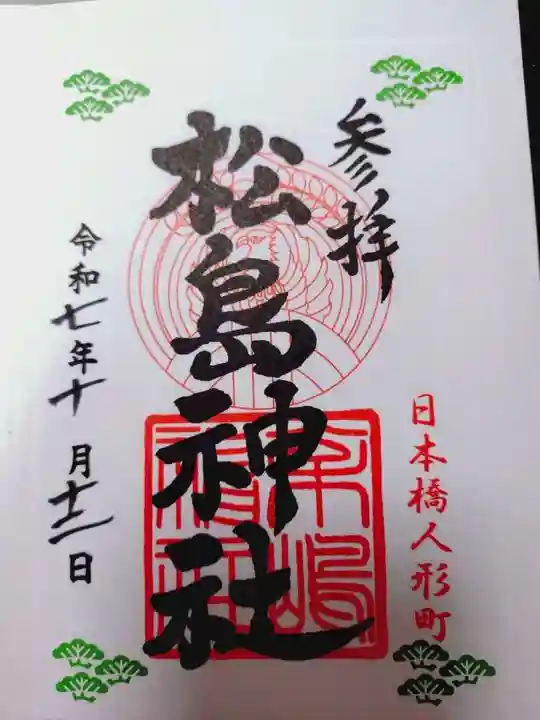 参拝
日本橋人形町
松島神社
令和七年十月十二日